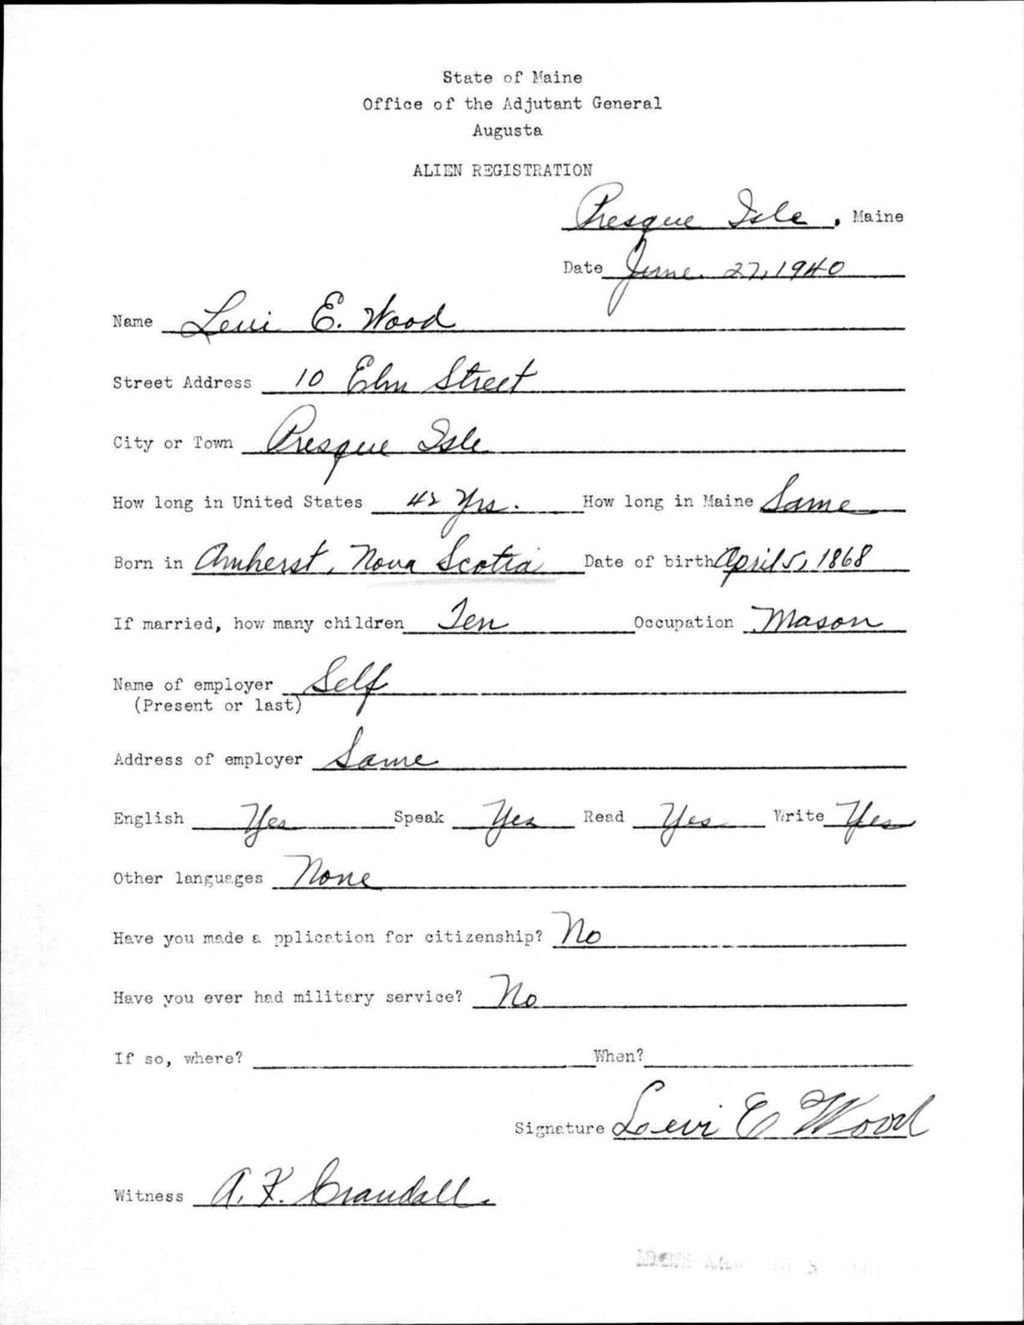 State of Maine
Office of the Adjutant General
Augusta
ALIEN REGISTRATION
Presque Isle, Maine
Date June. 27, 1940
Name Levi E. Wood
Street Address 10 Elm Street
City or Town Presque Isle
How long in United States 42 Yrs. How long in Maine Same
Born in Amherst, Nova Scotia Date of birth April 5, 1868
If married, how many children Ten Occupation Mason
Name of employer Self
(Present or last)
Address of employer Same
English Yes Speak Yes Read Yes Write Yes
Other languages None
Have you made a pplication for citizenship? No
Have you ever had military service? No
If so, where? When?
Signature Levi E Wood
Witness A. F. Crandall.